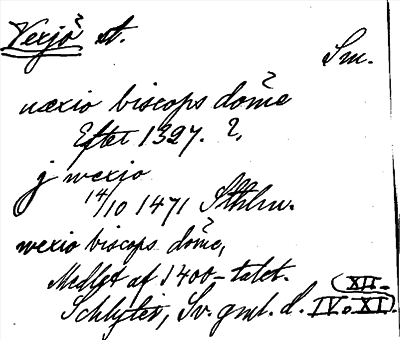 Vexjö st.
Sm.
uæxio biscops döme
Efter 1327. ?.
j wexio
14/10 1471 Sthlm.
wexio biscops döme,
Medlet af 1400-talet.
(XII.
Schlyter, Sv. gml. l. IV. XI).